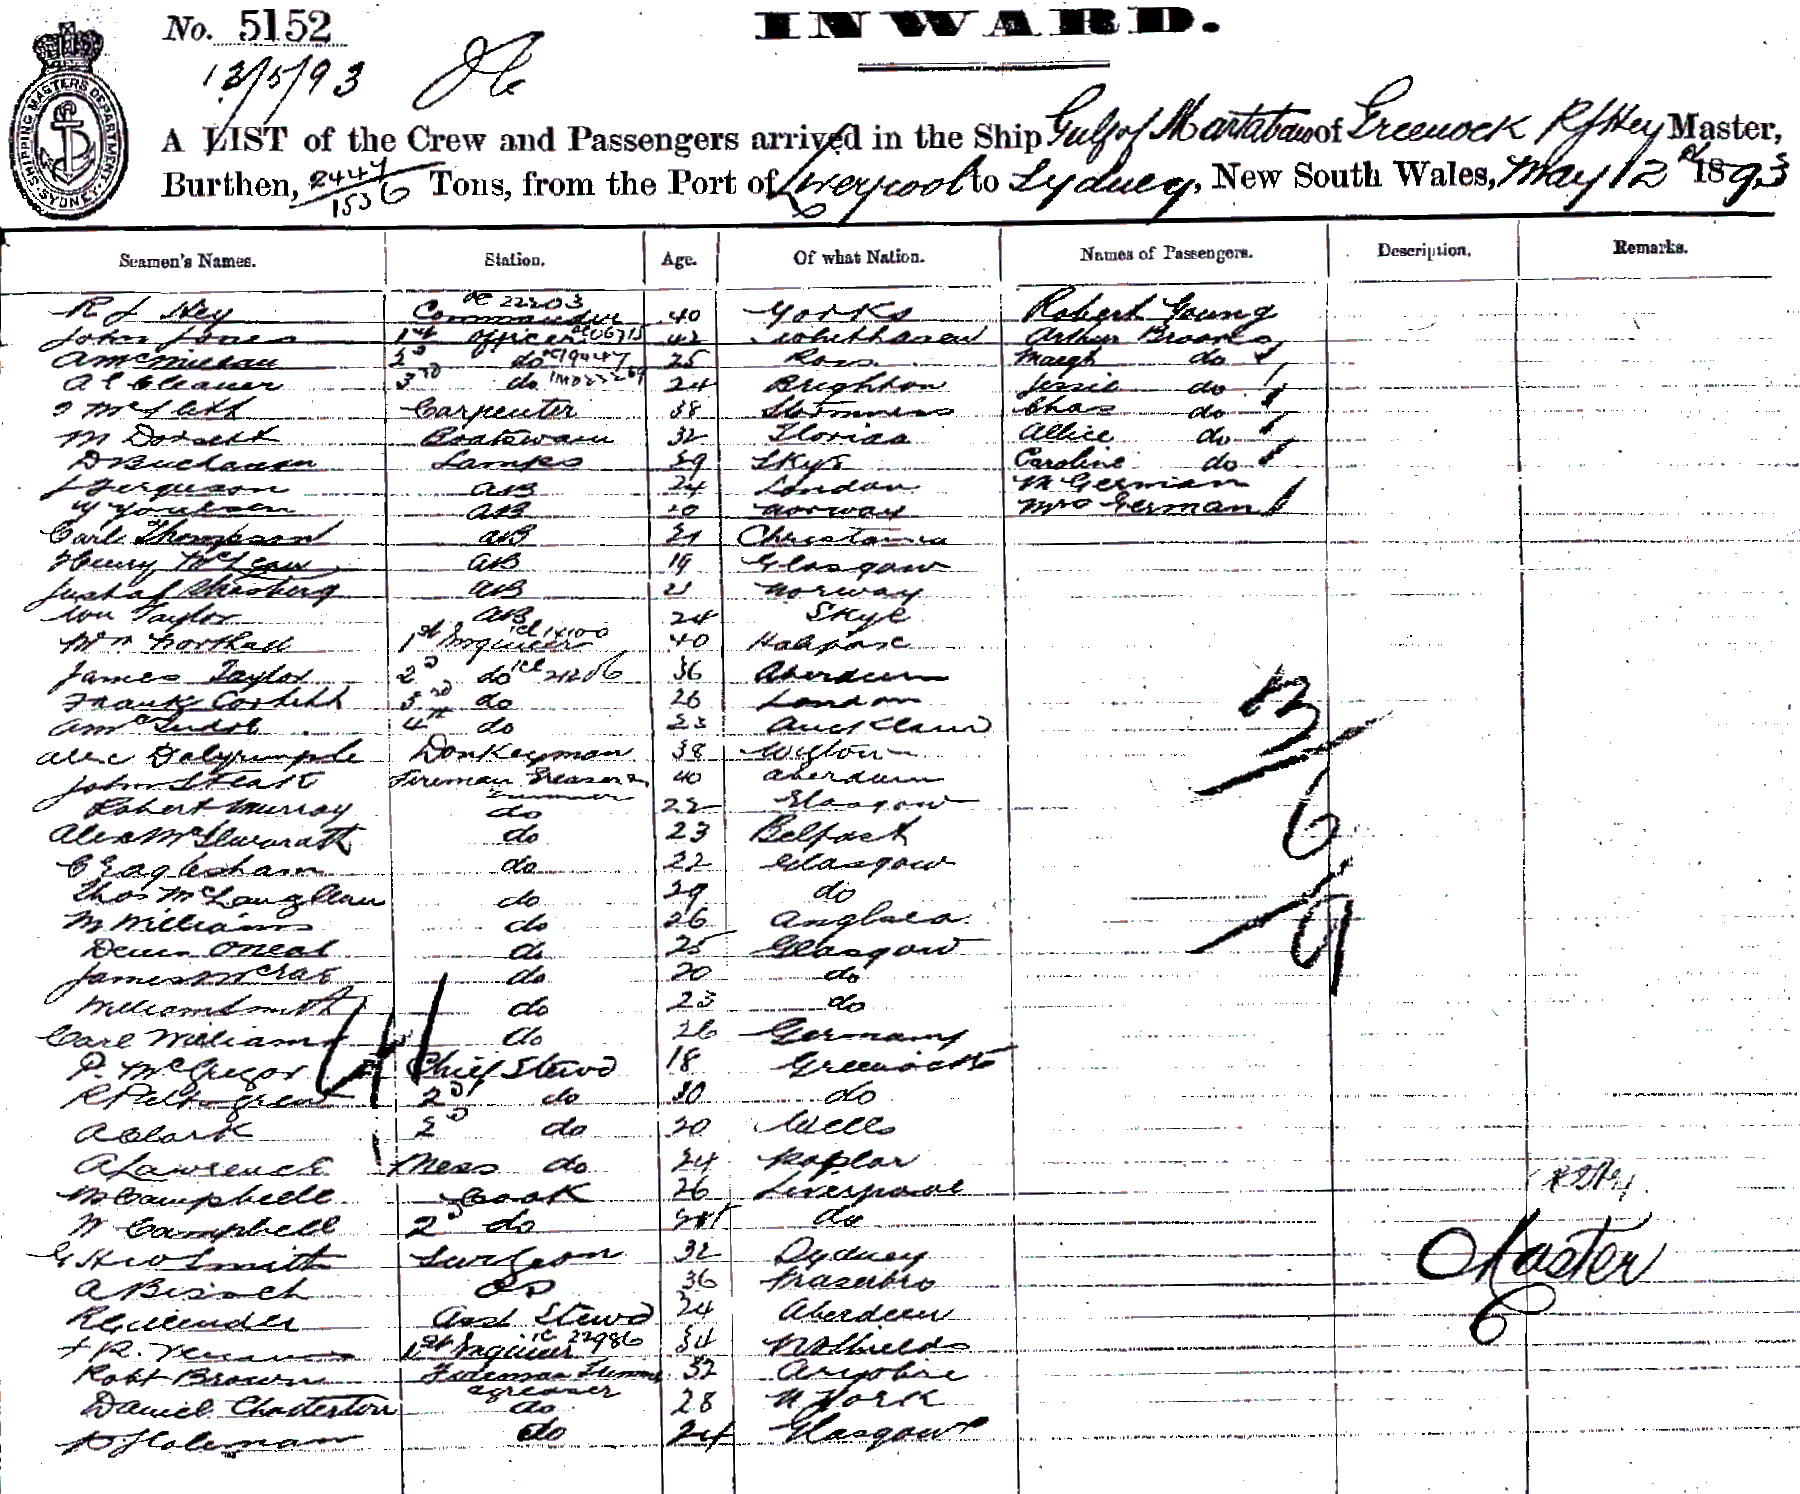 No. 5152
INWARD.
13/5/93
SHIPPING MASTERS DEPARTMENT SYDNEY
A LIST of the Crew and Passengers arrived in the Ship Gulf of Martaban of Greenock R J Hey Master,
Burthen, 2447/1536 Tons, from the Port of Liverpool to Sydney, New South Wales, May 12 1893
Seamen's Names. Station. Age. Of what Nation. Names of Passengers. Description. Remarks.
R J Hey Commander 40 Yorks Robert Young
John Jones 1st Officer 42 Whitehaven Arthur Brooks
A McMillan 2d do 25 Ross Margt do
A E Cleaver 3rd do 24 Brighton Jessie do
Carpenter 38 Stromness Chas do
M Dorsett Boatswain 32 Florida Allice do
D Buchanan Lamps 39 Skye Caroline do
J Ferguson AB 24 London M German
AB Norway Mrs German
Carl Thompson AB 21 Christania
Henry McLean AB 19 Glasgow
AB 21 Norway
Wm Taylor AB 24 Skye
1st Engineer 40 Halifax
James Taylor 2d do 36 Aberdeen
Frank Corbett 3rd do 26 London
4th do 23 Auckland
Alec Dalyrumple Donkeyman 38 Wigton
John Fireman Greaser & 40 Aberdeen
Robert Murray do 22 Glasgow
Alex McIlwrath do 23 Belfast
C Eaglesham do 22 Glasgow
Thos do 29 do
M Williams do 26 Anglsea
Denis Oneal do 25 Glasgow
James McCrae do 20 do
William Smith do 23 do
Carl Williams do 26 Germany
P. McGregor Chief Stewd 18 Greenock
R 2d do 30 do
A Clark 2d do 20 Wells
A Lawrence Mess do 24 Poplar
M Campbell Cook 26 Liverpool
N Campbell 2d do do
G H W Smith Surgeon 32 Sydney
A 36 Frazerbro
R Asst Stewd 24 Aberdeen
1st Engineer 34 N Shields
Robt Brown Fireman Trimmer 32
& greaser
Daniel Chatterton do 28 N York
Holeman do 24 Glasgow
41
3
6
9
Master